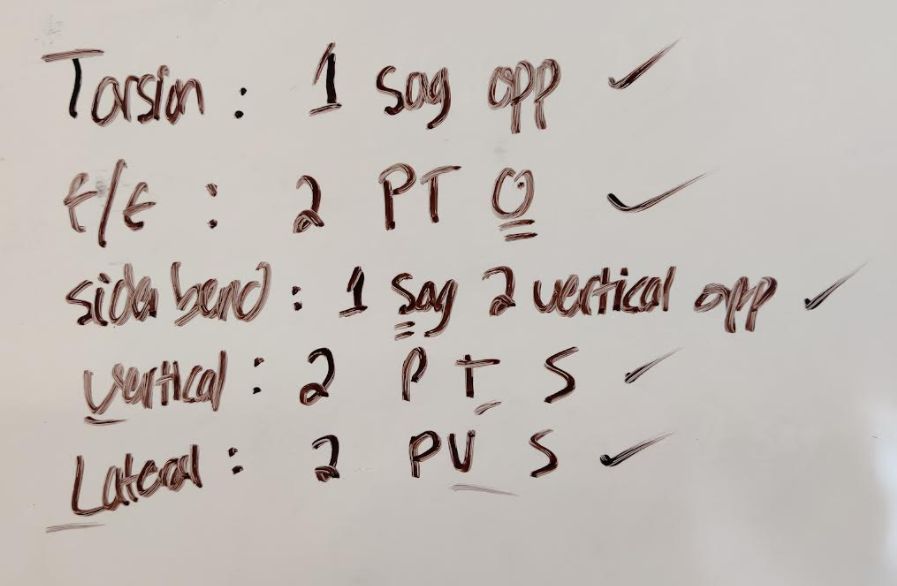 Torsion: 1 Sag opp ✓
f/E : 2 PT O ✓
side bend: 1 Sag 2 vertical opp ✓
Vertical: 2 P T S ✓
Lateral: 2 PV S ✓